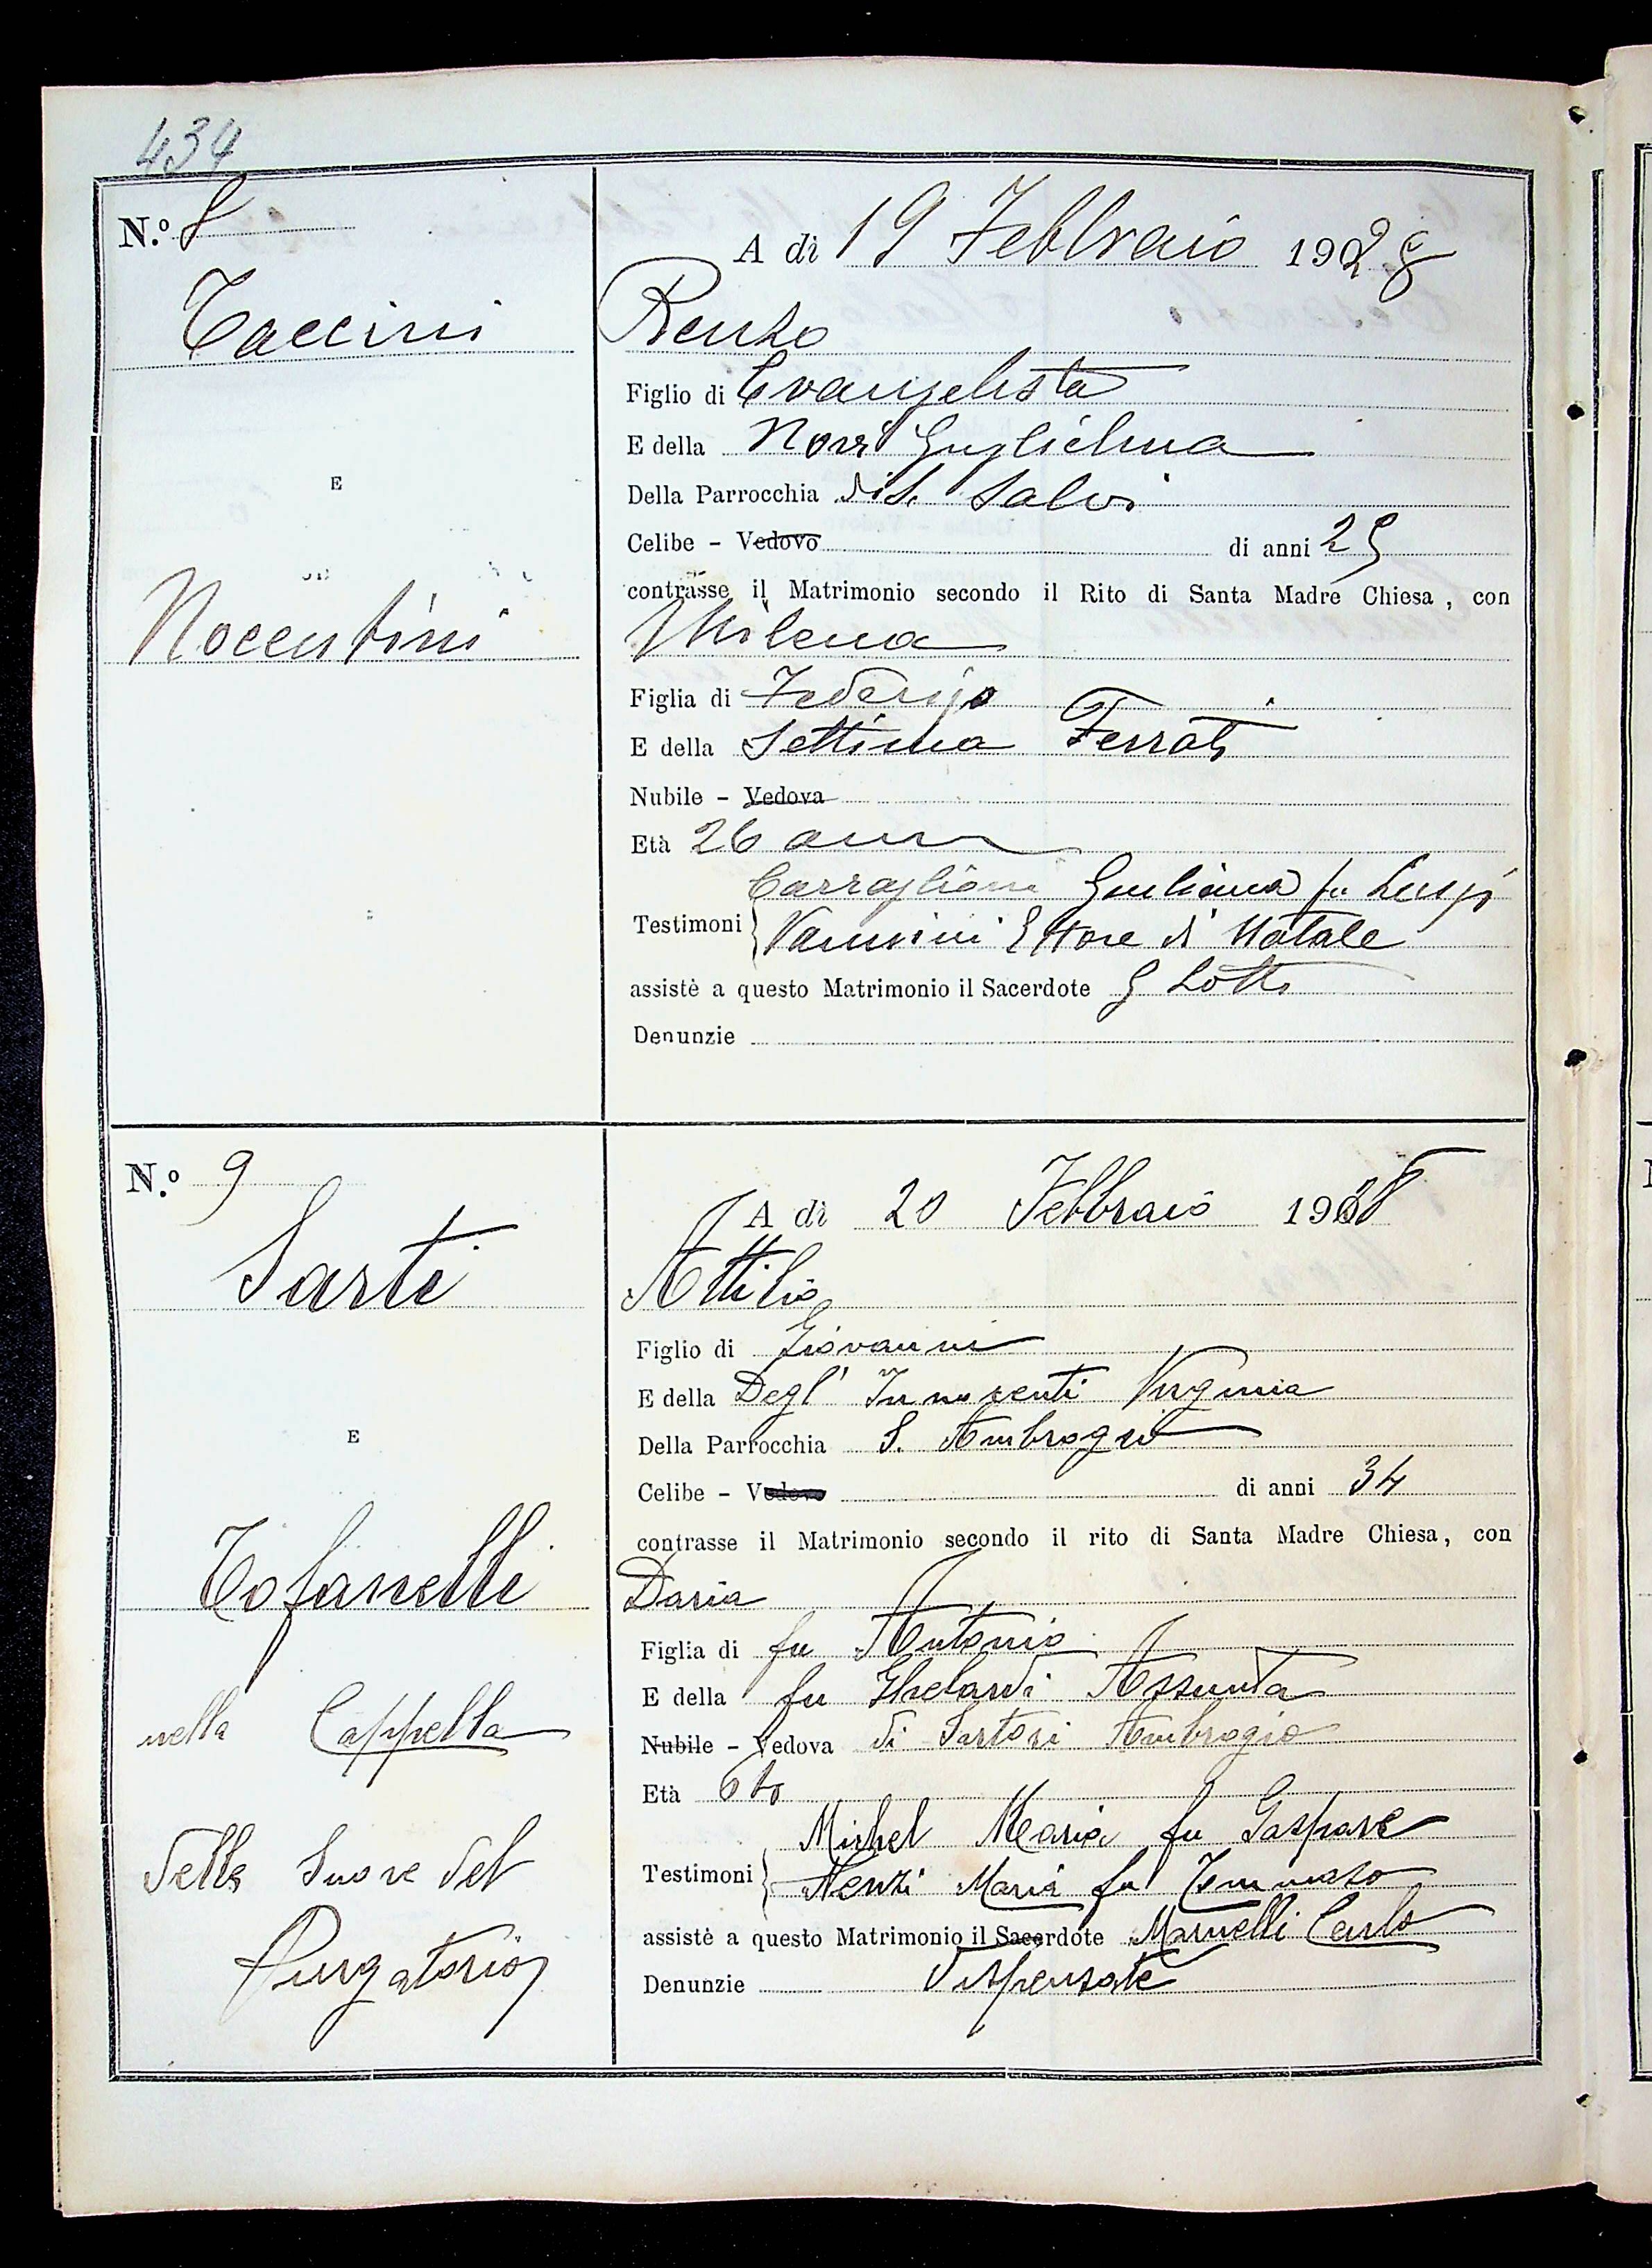 434
N.º 8
A dì 19 Febbraio 1928
Taccini
Renzo
Figlio di Evangelista
E della Norri Guglielma
Della Parrocchia di S. Salvi
E
Celibe - Vedovo di anni 25
contrasse il Matrimonio secondo il Rito di Santa Madre Chiesa, con
Nocentini
Milena
Figlia di Federigo
E della Settima Ferrati
Nubile - Vedova
Età 26 anni
Giuliana fu Luigi
Testimoni Vannini Ettore di Natale
assistè a questo Matrimonio il Sacerdote G Lotti
Denunzie
N.º 9
A dì 20 Febbraio 1928
Sarti
Attilio
Figlio di Giovanni
E della Degl' Innocenti Virginia
Della Parrocchia S. Ambrogio
E
Celibe - Vedovo di anni 34
contrasse il Matrimonio secondo il rito di Santa Madre Chiesa, con
Tofanelli
Daria
Figlia di fu Antonio
E della fu Ghelardi Assunta
nella Cappella
Nubile - Vedova di Sartori Ambrogio
Età
Michel Maria fu Gaspare
delle Suore del
Testimoni Nenzi Maria fu Tommaso
assistè a questo Matrimonio il Sacerdote Marnelli Carlo
Purgatorio
Denunzie Dispensate